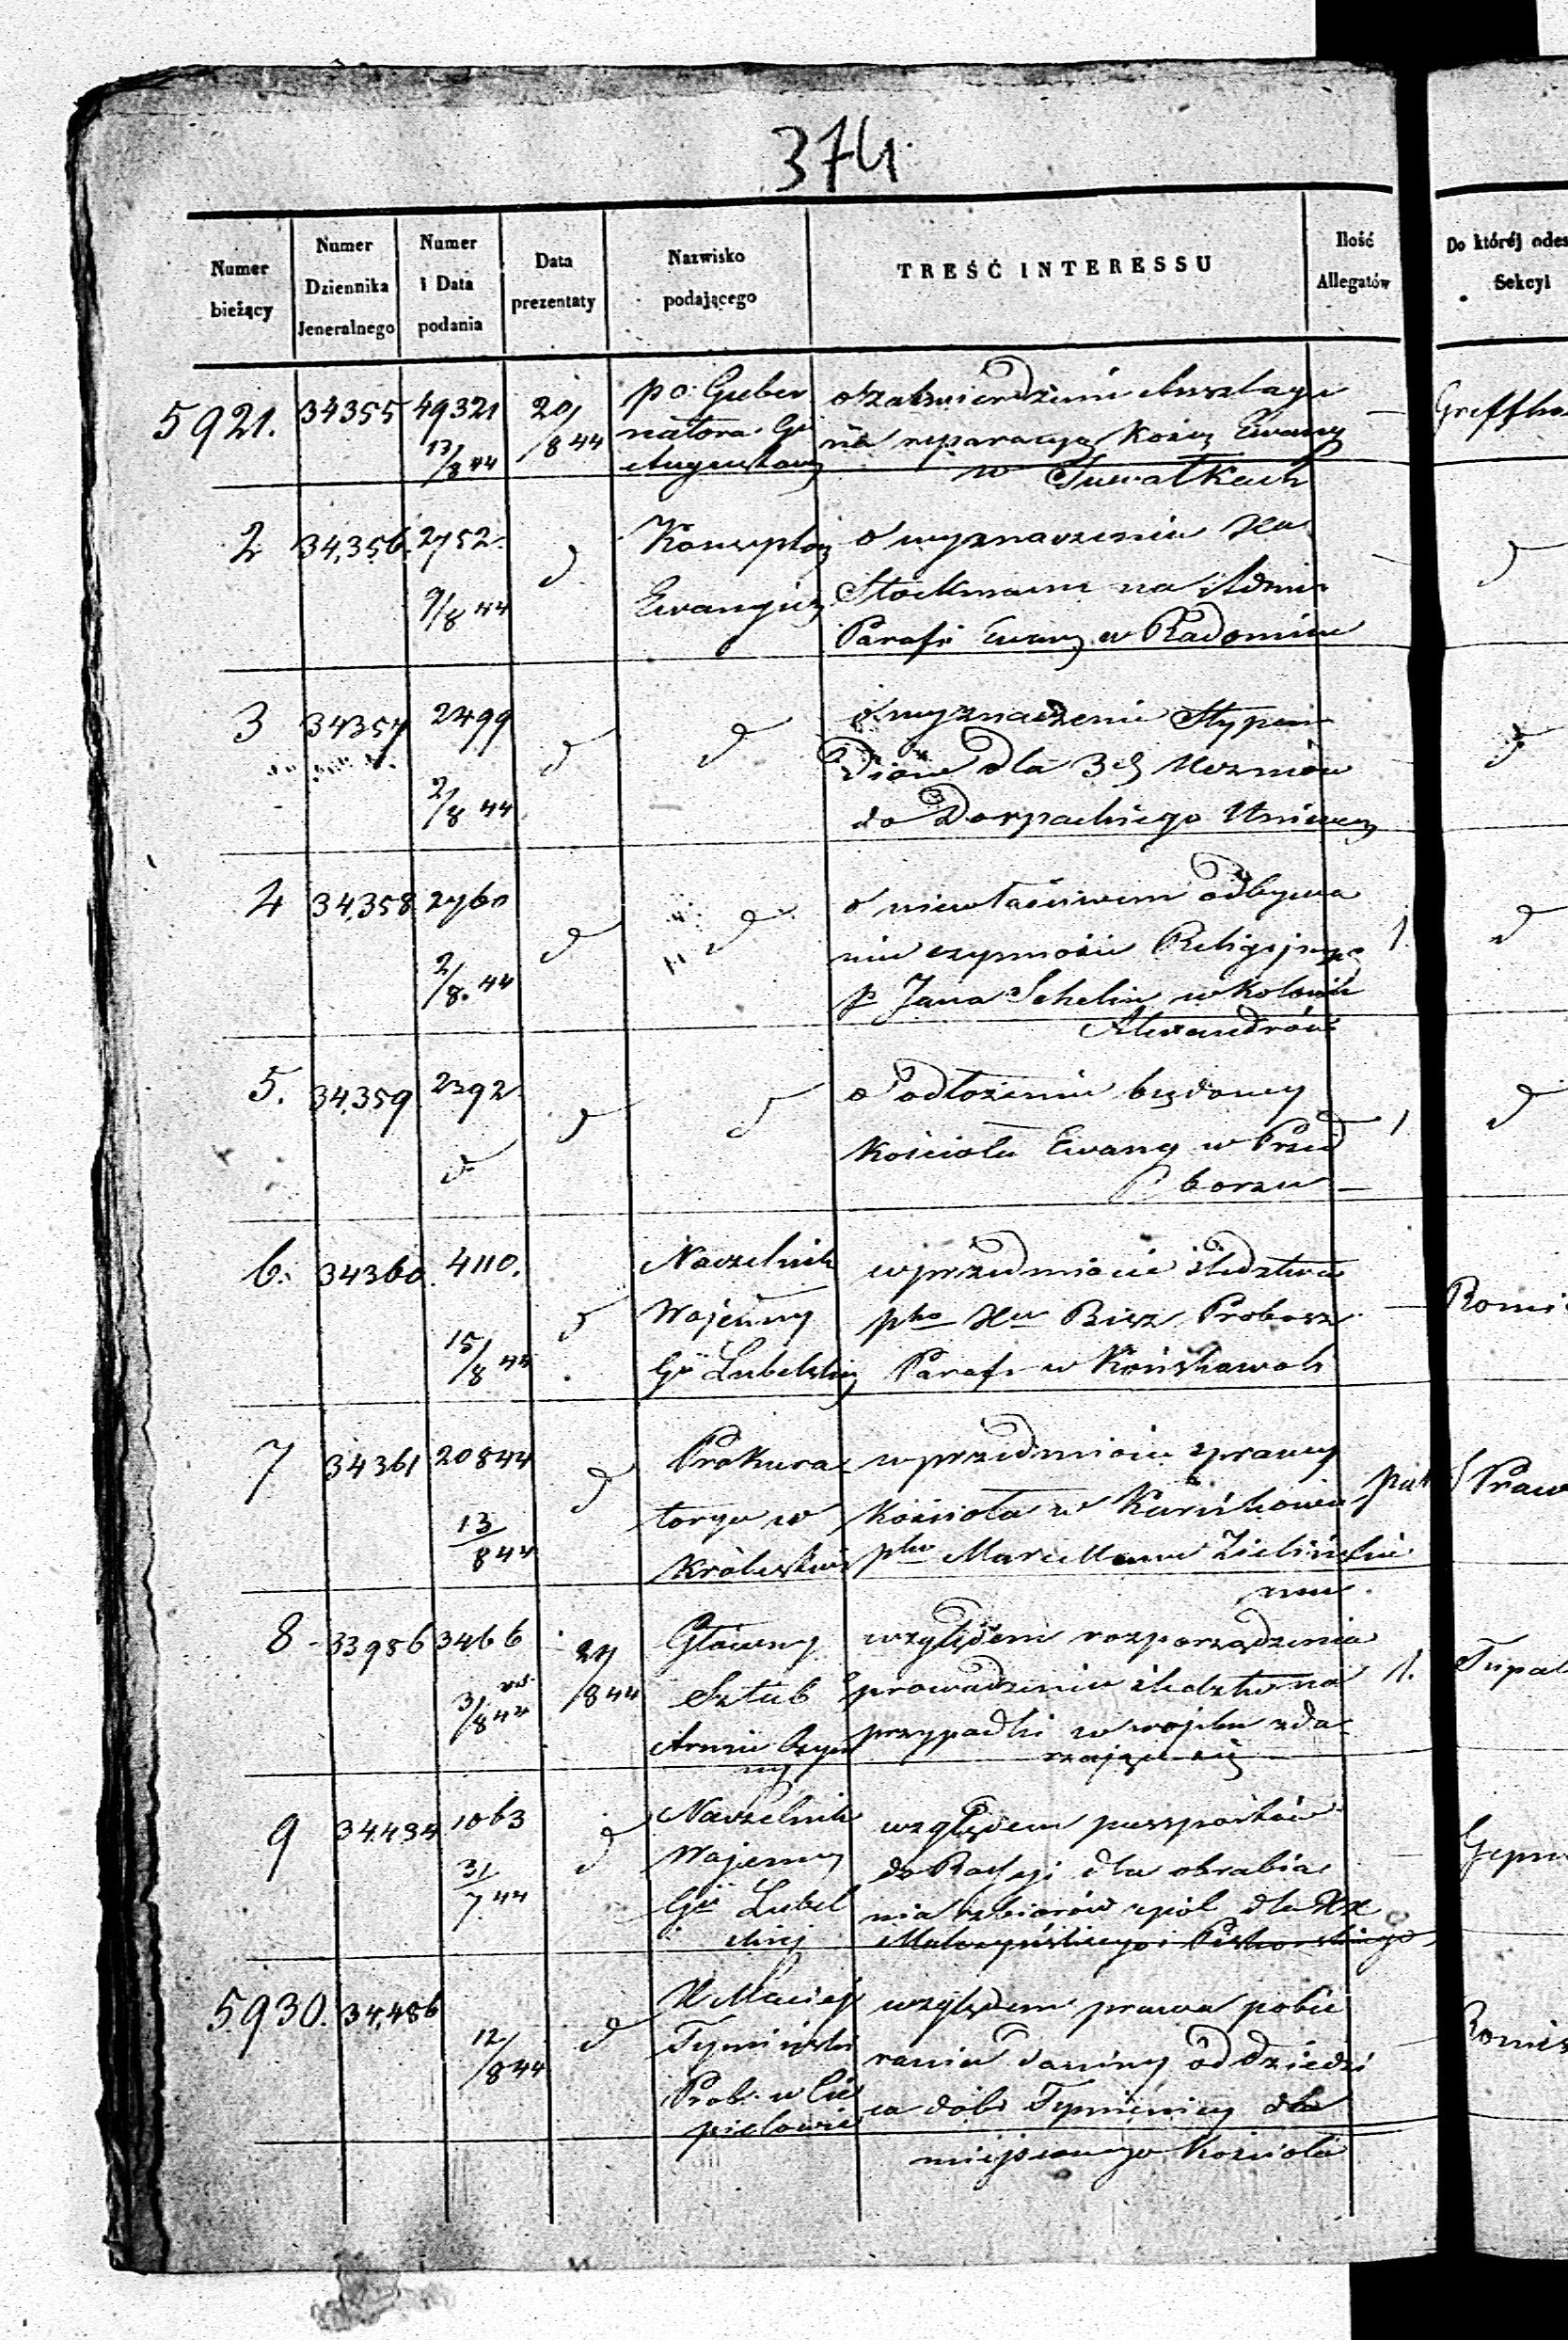 374.
Numer bieżący
Numer Dziennika Jeneralnego
Numer i Data podania
Data prezentaty
Nazwisko podającego
TREŚĆ INTERESSU
Ilość Allegatów
Do któréj odes
Sekcyi
5921. 34355 49321 13/8 44 20/8 44
po: Guber
natora Gii
Augustows
o zatwierdzenie Anszlagu
na reparacyę Kośc Ewang
w Suwałkach
—
2 34,356. 2752. 9/8 44 d
Konsystorz
Ewangiez
o wyznaczenie Xa
Stockmann na Admi-
Parafi Ewang w Radomiu
d
3 34357 2499 2/8 44 d d
o wyznaczenie Stypen
diów dla 3ch Uczniów
do Dorpackiego Uniwers
d
4 34,358 2760 2/8. 44 d d
o niewłaściwem odbywa
niu czynności Religijnych
p Jana Schelin w Kolonii
Alexandrów
1 d
5. 34,359 2392 d d d
o odłożeniu budowy
Kościoła Ewang w Przed
borzu —
1 d
6. 34360. 4110. 15/8 44 d
Naczelnik
Wojenny
Gii Lubelskiej
w przedmiocie śledztwa
pko Xu Bisz Probosz
Parafi w Końskawoli
—
7 34361 20844 13/8 44 d
Prokura-
torya w
Królestwie
w przedmiocie sprawy
Kościoła w
pko Marcellemu Zielińskie
mu
8 33986 3466 3/8 44 27/8 44
Główny
Sztab
Armii Czyn
nej
względem rozporządzenia
prowadzenia śledztw na
przypadki w wojsku zda-
rzające się —
1.
9 34.434 1063 31/7 44 d
Naczelnik
Wojenny
Gii Lubel
skiej
względem passportów
do Rossyi dla obrabia
nia zbiorów z pól dla XX
—
5930. 34,486 12/8 44 d
X Maciej
Tymiński
Prob. w Cie
pielowie
względem prawa pobie
rania daniny od dziedzi
ca dóbr Tymienicy dla
miejscowego Kościoła